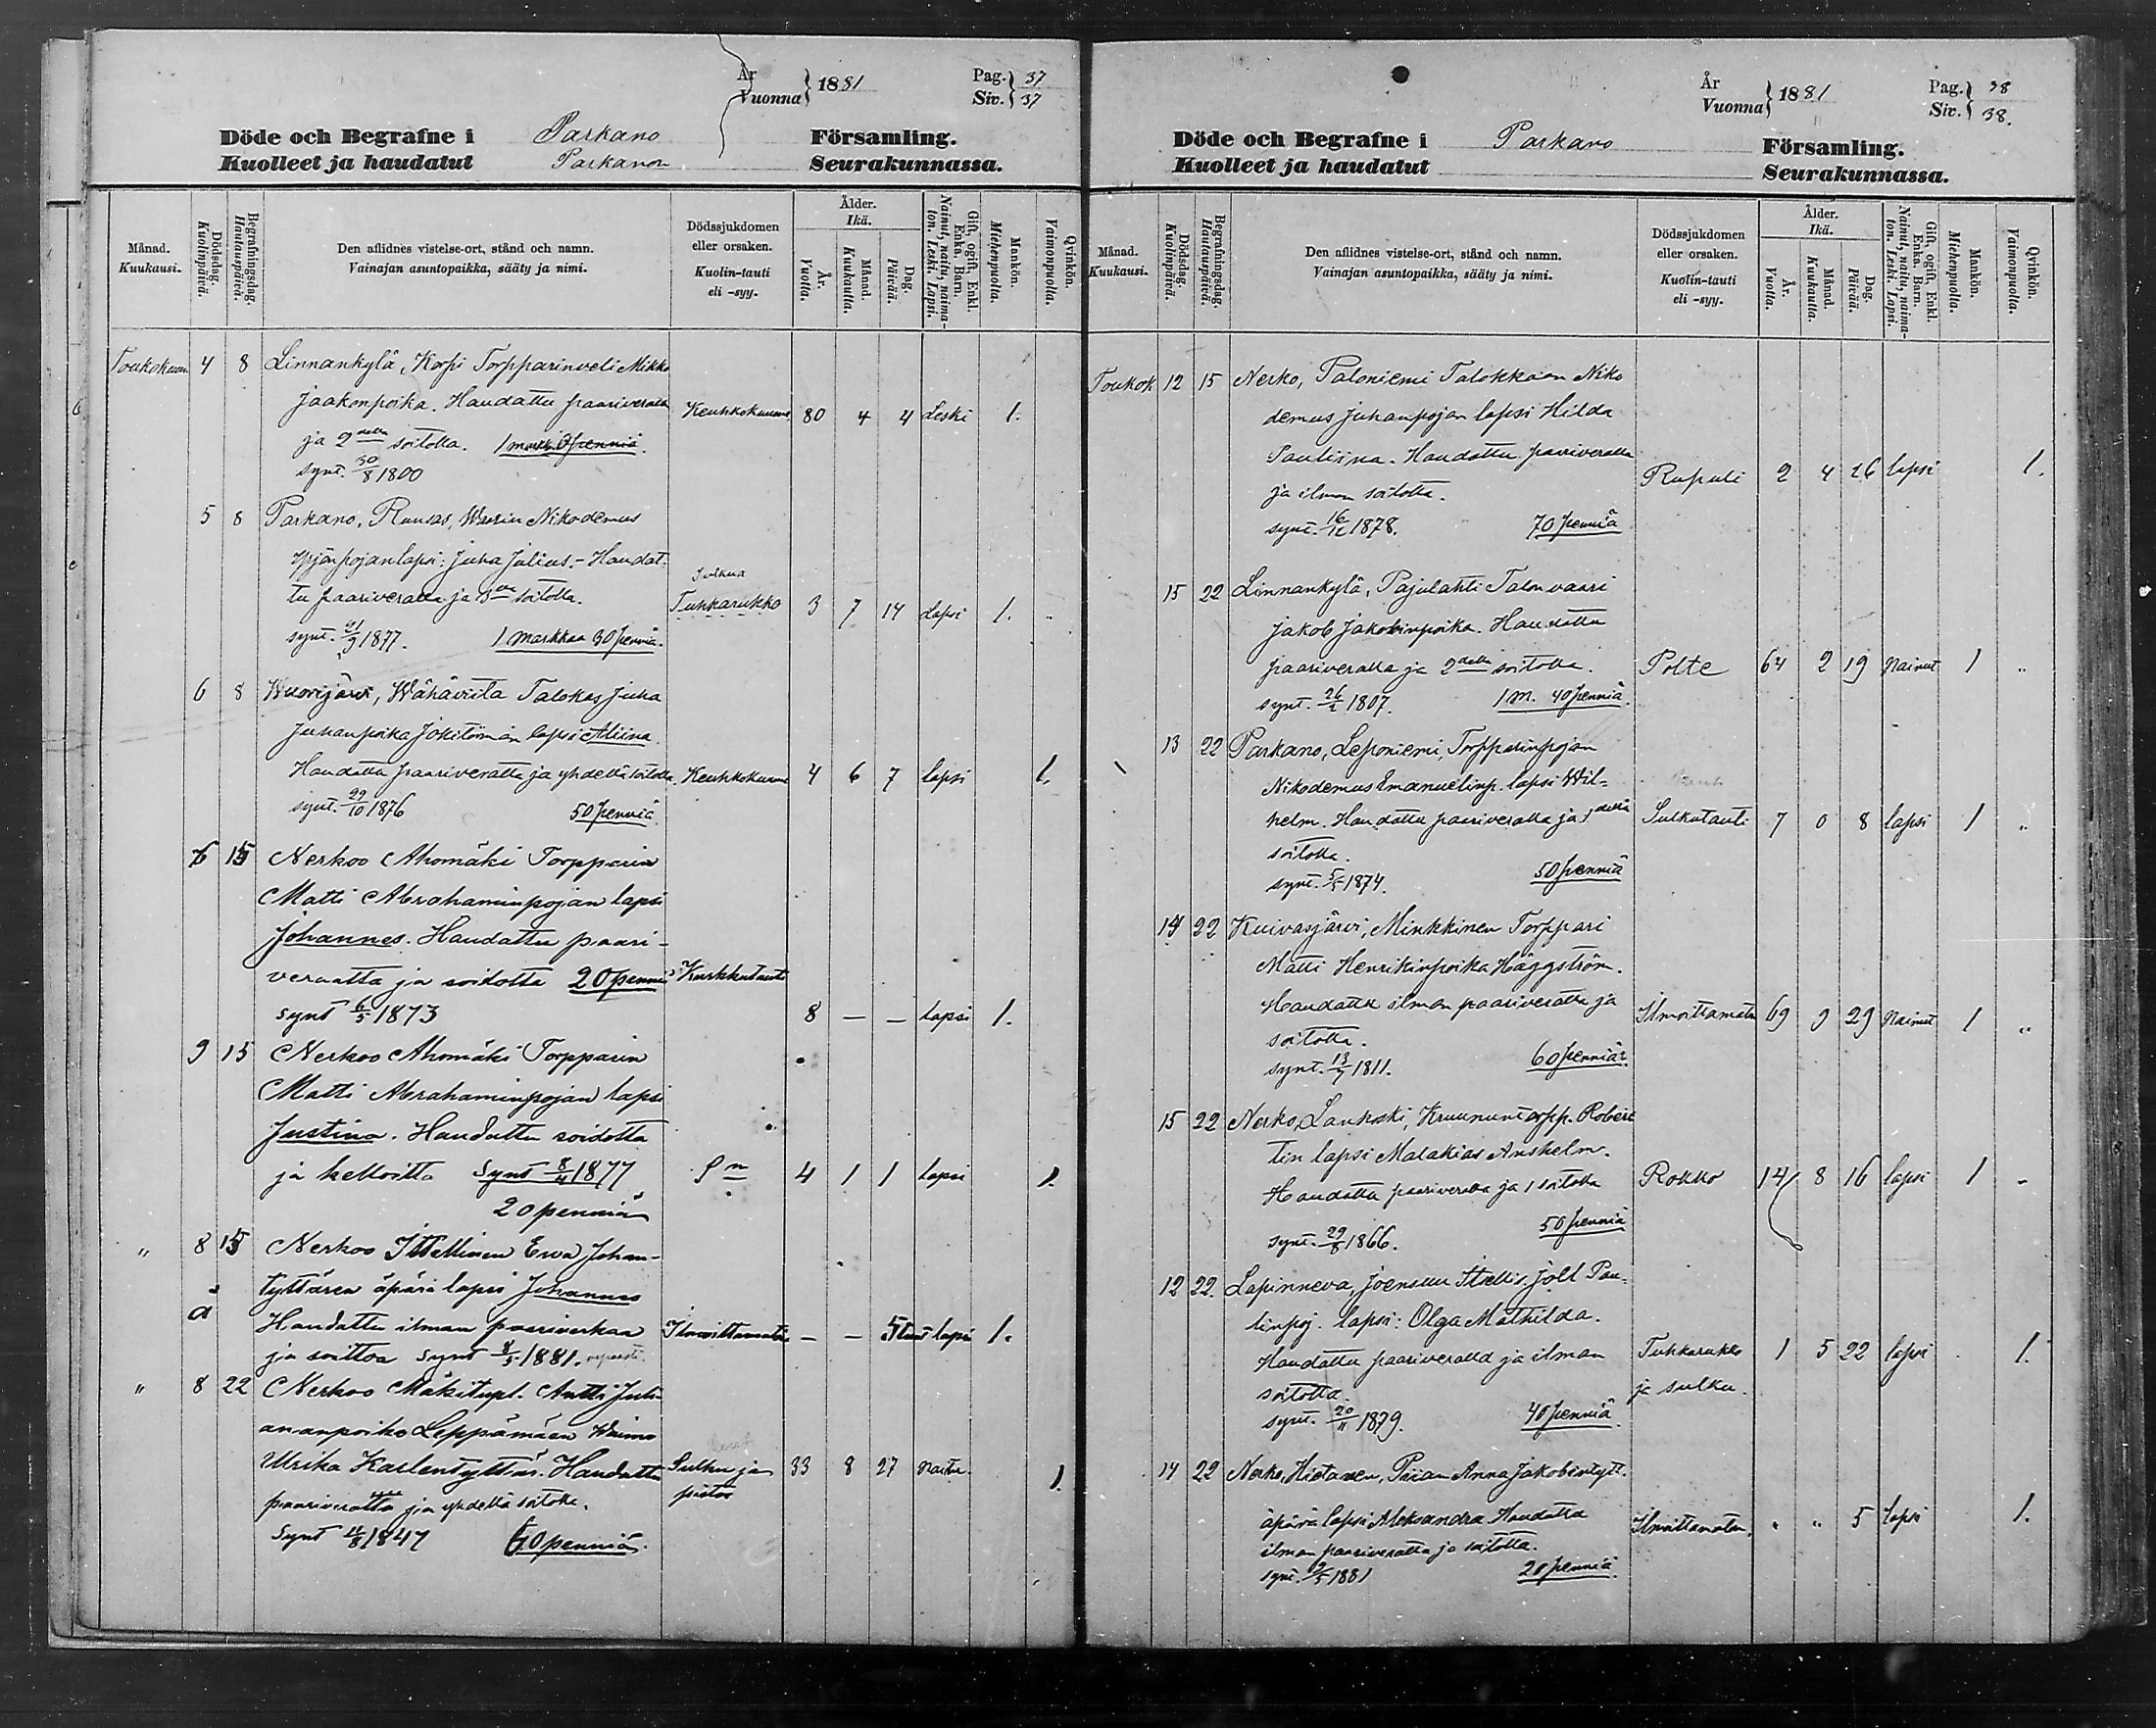 År
Vuonna } 1881
Pag. } 37
Siv. } 37
Döde och Begrafne i Parkano Församling.
Kuolleet ja haudatut Parkanon Seurakunnassa.
Månad. Kuukausi.
Dödsdag. Kuolinpäivä.
Begrafningsdag. Hautauspäivä.
Den aflidnes vistelse-ort, stånd och namn.
Vainajan asuntopaikka, sääty ja nimi.
Dödssjukdomen eller orsaken.
Kuolin-tauti eli -syy.
Ålder. Ikä.
År. Vuotta.
Månad. Kuukautta.
Dag. Päivää.
Gift, ogift, Enkl. Enka, Barn.
Nainut, naitu, naimaton. Leski. Lapsi.
Mankön. Miehenpuolta.
Qvinkön. Vaimonpuolta.
Toukokuun 4 8 Linnankylä, Korpi Torpparinveli Mikko
Jaakonpoika. Haudattu paariveralla Keuhkokuume 80 4 4 Leski 1.
ja 2della soitolla. 1 markk
synt. 30/8 1800
5 8 Parkano, Runsas, Waarin Nikodemus
Yrjänpojanlapsi: Juha Julius. – Haudat-
tu paariveralla ja soitolla. Sulkua Tuhkarukko 3 7 14 Lapsi 1.
synt. 21/9 1877. 1 markkaa 30 penniä.
6 8 Wuorijärvi, Wähävirta Talokas Juha
Juhanpoika Jokitörmän lapsi Aliina.
Haudattu paariveralla ja yhdellä soitolla. Keuhkokuume 4 6 7 lapsi 1.
synt. 29/10 1876 50 penniä
6 15 Nerkoo Ahomäki Torpparin
Matti Abrahaminpojan lapsi
Johannes. Haudattu paari-
veratta ja soidotta 20 penniä Kurkkutauti
synt 6/5 1873 8 — — Lapsi 1.
9 15 Nerkoo Ahomäki Torpparin
Matti Abrahaminpojan lapsi
Justina. Haudattu soidotta
ja kelloitta synt 8/4 1877 S n 4 1 1 Lapsi 1.
20 penniä
" 8 15 Nerkoo Itsellinen Ewa Johan-
tyttären äpärä lapsi Johannes
ä Haudattu ilman paariverkaa Ilmoittamatta — — 5 lapsi 1.
ja soittoa synt 8/5 1881.
" 8 22 Nerkoo Mäkitupl. Antti Juli-
ananpoika Leppämäen Waimo
Ulrika Kaslentyttär. Haudattu Sulku ja 33 8 27 Naitu. 1.
paariveralla ja yhdellä soitolla. pistos
synt 1847 60 penniä.
År
Vuonna } 1881
Pag. } 38
Siv. } 38.
Döde och Begrafne i Parkano Församling.
Kuolleet ja haudatut Seurakunnassa.
Månad. Kuukausi.
Dödsdag. Kuolinpäivä.
Begrafningsdag. Hautauspäivä.
Den aflidnes vistelse-ort, stånd och namn.
Vainajan asuntopaikka, sääty ja nimi.
Dödssjukdomen eller orsaken.
Kuolin-tauti eli -syy.
Ålder. Ikä.
År. Vuotta.
Månad. Kuukautta.
Dag. Päivää.
Gift, ogift, Enkl. Enka, Barn.
Nainut, naitu, naimaton. Leski. Lapsi.
Mankön. Miehenpuolta.
Qvinkön. Vaimonpuolta.
Toukok 12 15 Nerko, Paloniemi Talokkaan Niko
demus Juhanpojan lapsi Hilda
Pauliina. Haudattu paariveralla Rupuli 2 4 26 lapsi 1.
ja ilman soitotta.
synt. 16/12 1878. 70 penniä
15 22 Linnankylä, Pajulahti Talon vaari
Jakob Jakobinpoika. Haudattu
paariveralla ja 2della soitolla. Polte 64 2 19 Nainut 1 "
synt. 26/2 1807. 1 m. 40 penniä.
13 22 Parkano, Leponiemi, Torpparinpojan
Nikodemus Emanuelinp. lapsi Wil-
helm. Haudattu paariveralla ja 1dellä Sulkutauti 7 0 8 lapsi 1 "
soitolla.
synt. 5/5 1874. 50 penniä
14 22 Kuivasjärvi, Minkkinen Torppari
Matti Henrikinpoika Häggström.
Haudattu ilman paariveratta ja Ilmoittamatta 69 9 29 Nainut 1 "
soitotta.
synt. 13/7 1811. 60 penniä
15 22 Nerko, Laukoski, Kruununtorpp. Rober
tin lapsi Malakias Anshelm.
Haudattu paariveralla ja 1 soitolla Rokko 14 8 16 lapsi 1 "
synt. 29/8 1866. 50 penniä
12 22. Lapinneva, Joensuu Itsellis. Joll Pau-
linpoj. lapsi: Olga Mathilda.
Haudattu paariveralla ja ilman Tuhkarukko 1 5 22 lapsi 1.
soitotta. ja sulku.
synt. 20/11 1879. 40 penniä
14 22 Nerko, Hietanen, Piian Anna Jakobintytt.
äpärä lapsi Aleksandra Haudattu Ilmoittamatta. " " 5 lapsi 1.
ilman paariveratta ja soitotta.
synt. 9/5 1881 20 penniä